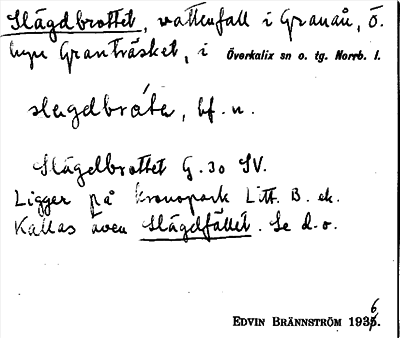 Slägdbrottet, vattenfall i Granån, Ö.
byn Granträsket, i Överkalix sn o. tg. Norrb. l.
slægdbråta, bf. n.
Slägdbrottet G. 30 SV.
Ligger på kronopark Litt. B. ek.
Kallas även Slägdfallet. Se d. o.
EDVIN BRÄNNSTRÖM 1936.